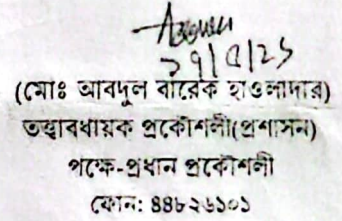 ২৭/৫/২৫
(মোঃ আবদুল বারেক হাওলাদার)
তত্ত্বাবধায়ক প্রকৌশলী(প্রশাসন)
পক্ষে-প্রধান প্রকৌশলী
ফোন: ৪৪৮২৬১০১